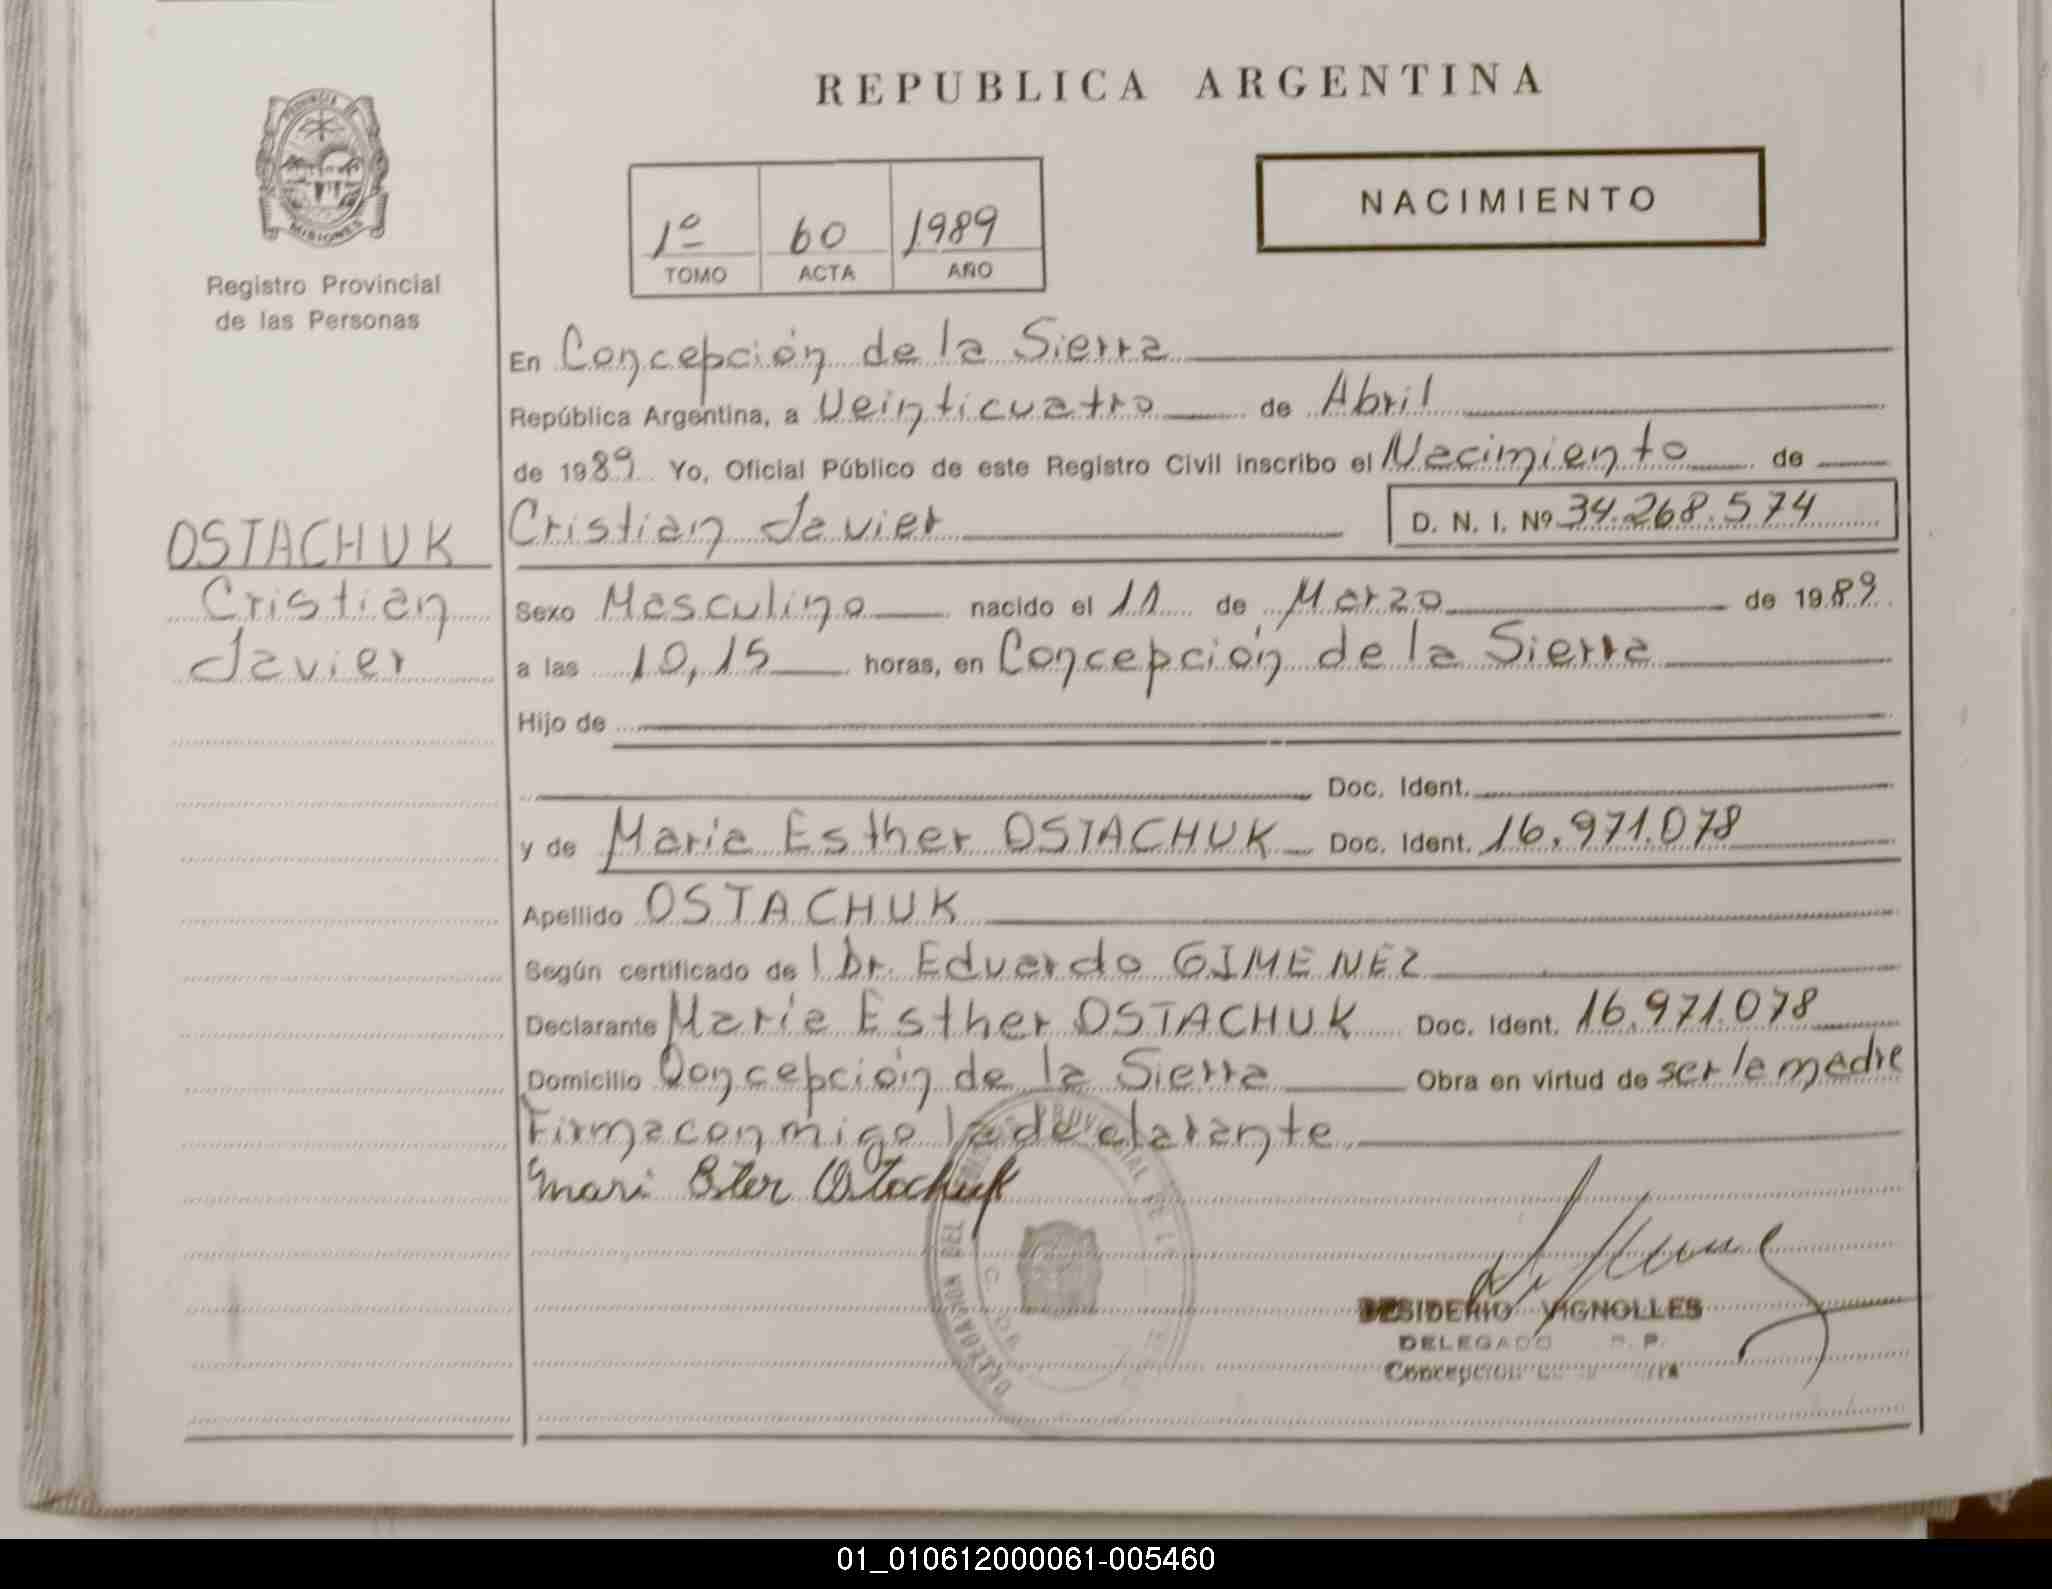 REPUBLICA ARGENTINA
PROVINCIA DE
MISIONES
Registro Provincial
de las Personas
1º 60 1989
TOMO ACTA AÑO
NACIMIENTO
En Concepción de la Sierra
República Argentina, a Veinticuatro de Abril
de 1989 Yo, Oficial Público de este Registro Civil inscribo el Nacimiento de
Cristian Javier D. N. I. Nº 34.268.574
OSTACHUK
Cristian
Javier
Sexo Masculino nacido el 11 de Marzo de 1989
a las 10,15 horas, en Concepción de la Sierra
Hijo de
Doc. Ident.
y de María Esther OSTACHUK Doc. Ident. 16.971.078
Apellido OSTACHUK
Según certificado de l Dr. Eduardo GIMENEZ
Declarante María Esther OSTACHUK Doc. Ident. 16.971.078
Domicilio Concepción de la Sierra Obra en virtud de ser la madre
Firma conmigo la declarante
Mari Ester Ostachuk
DELEGACION DEL
DESIDERIO VIGNOLLES
DELEGADO R. P.
Concepción
01_010612000061-005460